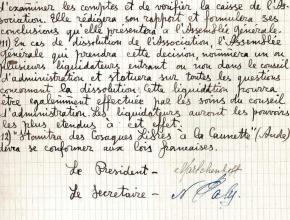 d'examiner les comptes et de vérifier la caisse de l'As-
sociation. Elle rédigera son rapport et formulera ses
conclusions qu'elle présentera à l'Assemblée générale.
11) En cas de dissolution de l'Association, l'Assemblée
Générale qui prendra cette décision, nommera un ou
plusieurs liquidateurs entrant ou non dans le conseil
d'administration et statuera sur toutes les questions
concernant la dissolution. Cette liquidation pourra
être également effectuée par les soins du conseil
d'administration. Les liquidateurs auront les pouvoirs
les plus étendus à cet effet.
12) "Stanitza des Cosaques Libres à la Caunette" (Aude)
devra se conformer aux lois françaises.
Le Président -
Le Secrétaire - N